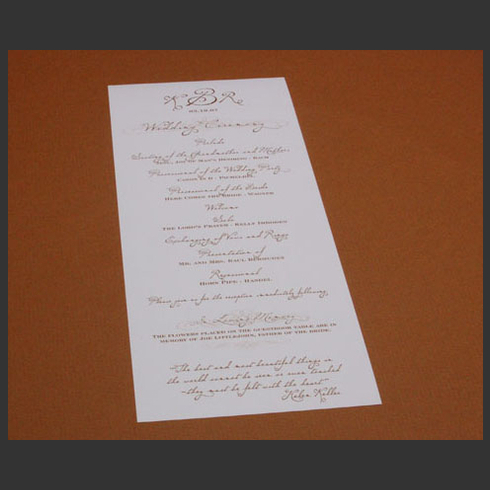 K B R
Wedding Ceremony
Prelude
Seating of the Grandmother and Mothers
Processional of the Wedding Party
Canon in D - Pachelbel
Processional of the Bride
Here Comes the Bride - Wagner
Welcome
Solo
The Lord's Prayer - Kelly
Exchanging of Vows and Rings
Presentation of
Mr. and Mrs. Raul
Recessional
Horn Pipe - Handel
Please join us for the reception immediately following.
In Loving Memory
The flowers placed on the guestbook table are in
memory of Joe Littlejohn, father of the bride.
"The best and most beautiful things in
the world cannot be seen or even touched
-they must be felt with the heart"
Helen Keller